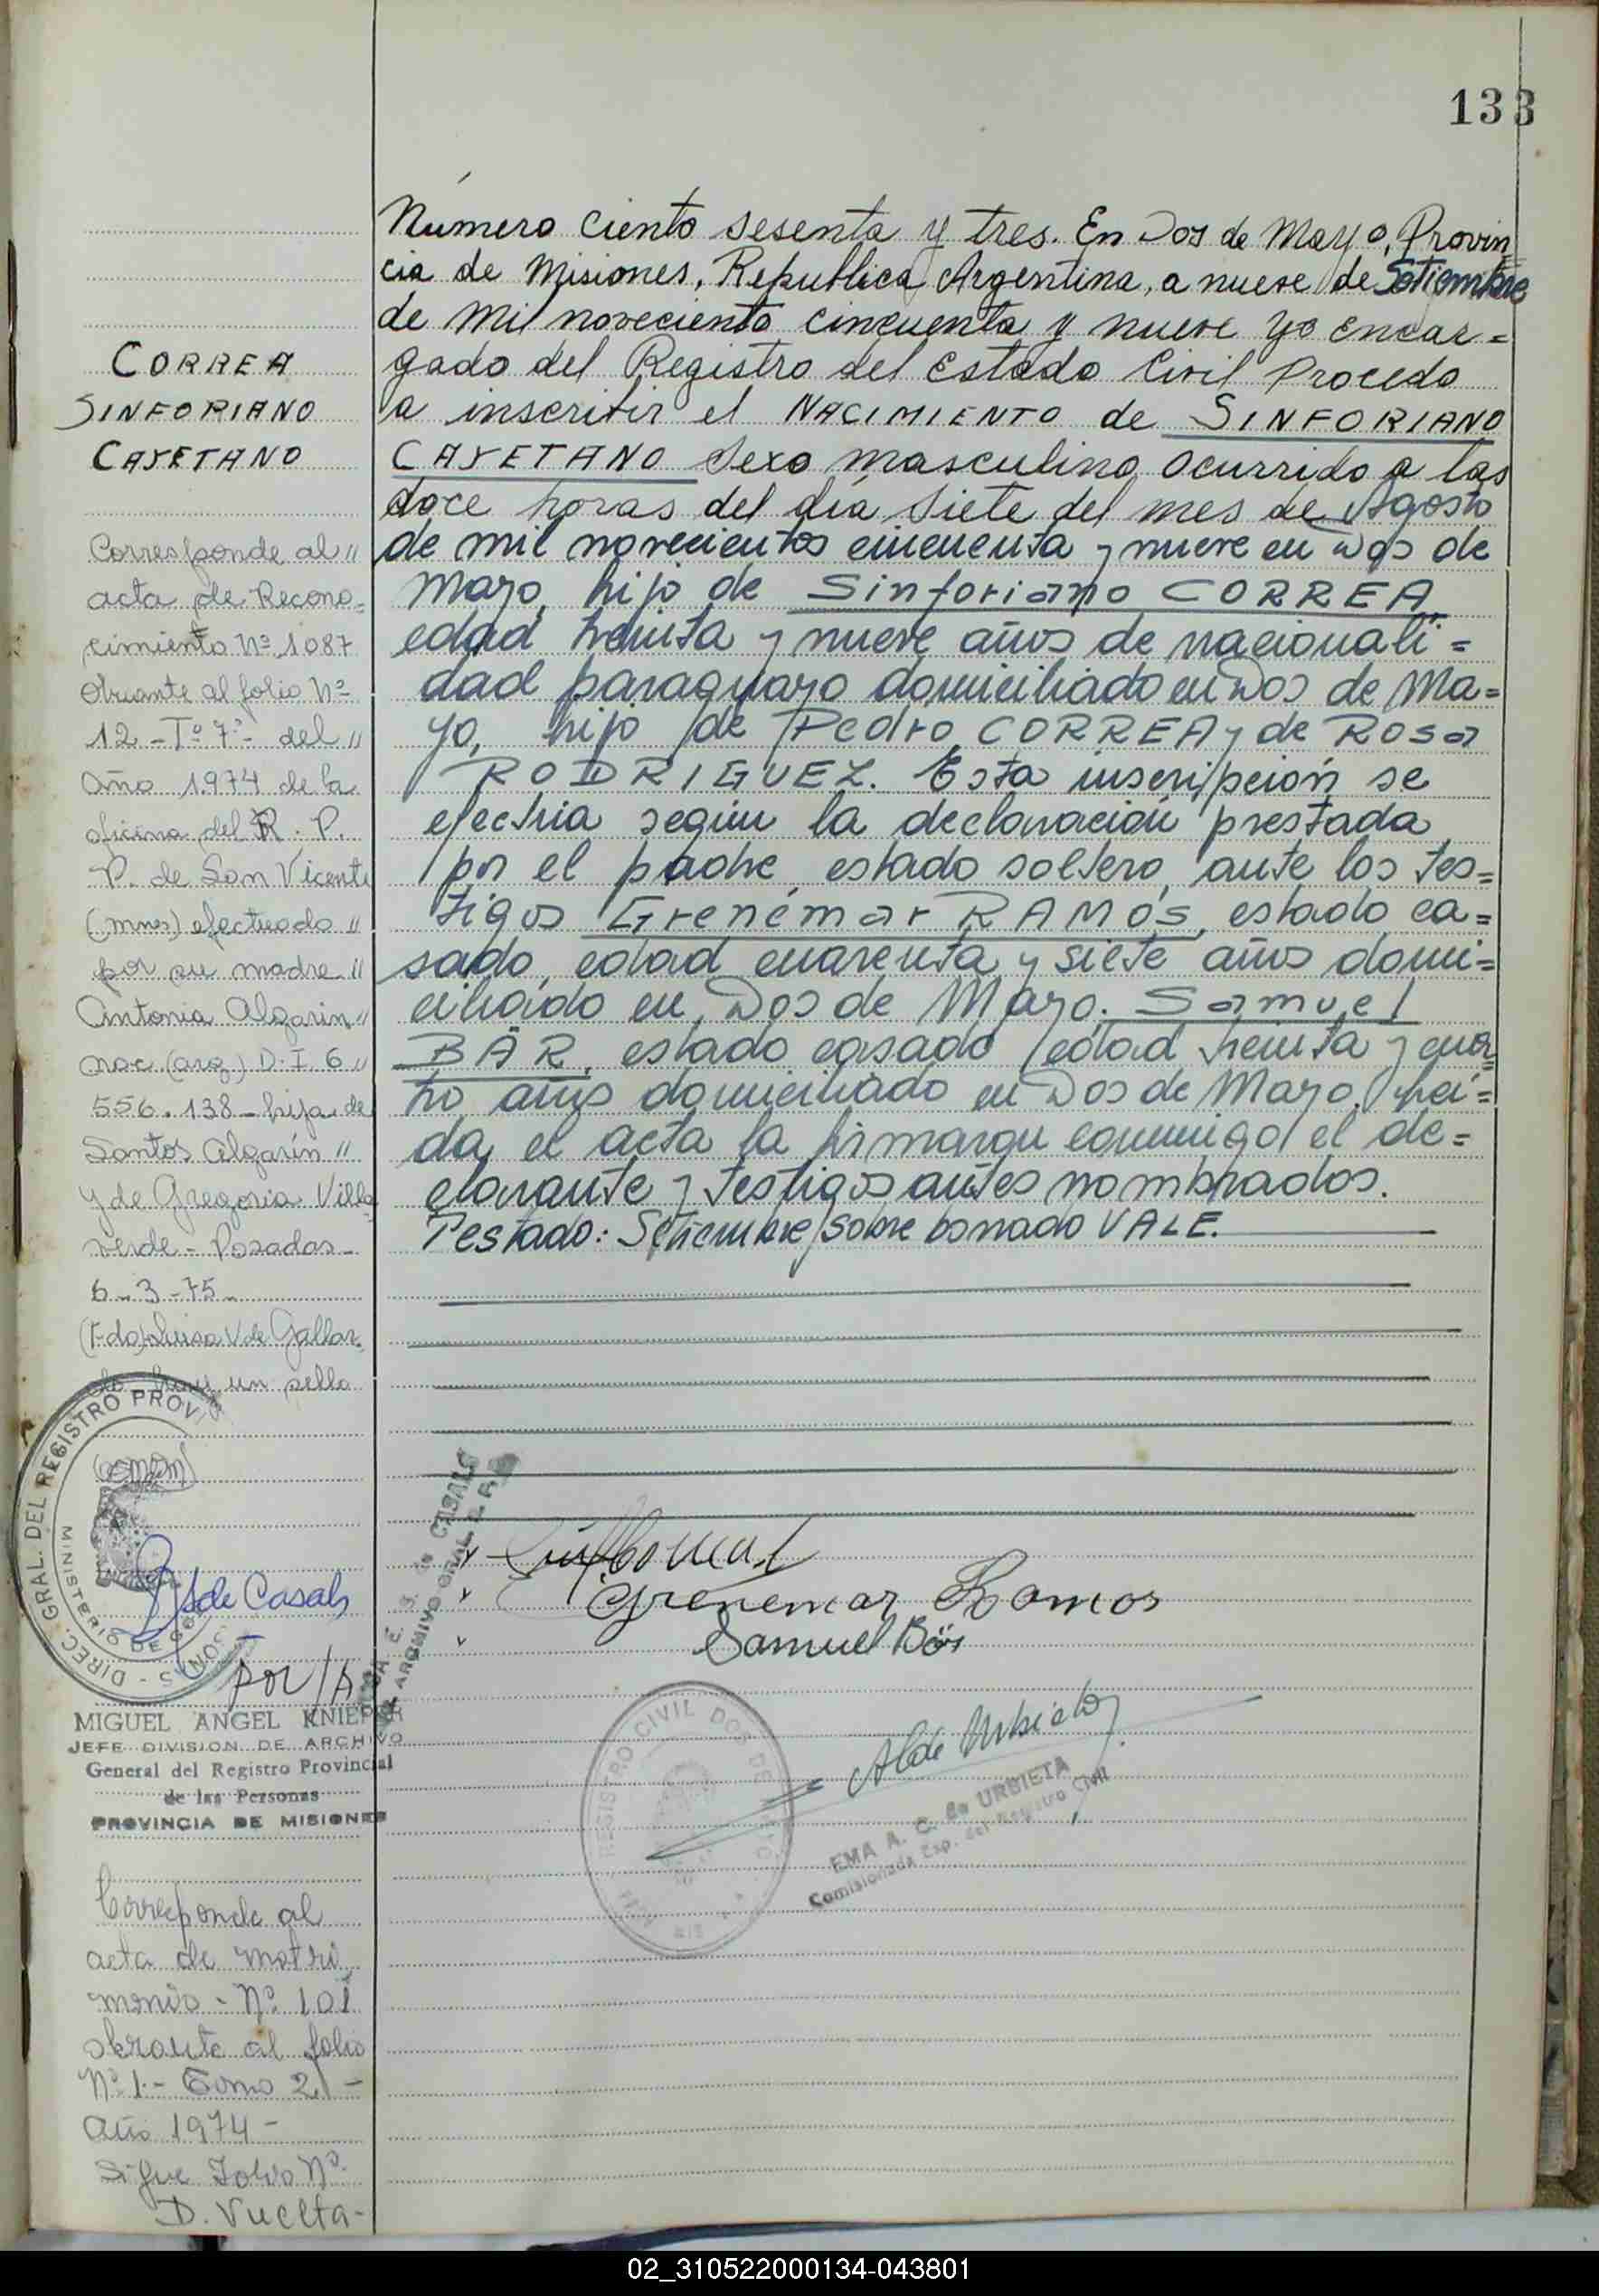 133
Número ciento sesenta y tres. En Dos de Mayo, Provin
cia de Misiones, Republica Argentina, a nueve de Setiembre
de mil noveciento cincuenta y nueve yo Encar=
gado del Registro del Estado Civil Procedo
a inscribir el NACIMIENTO de SINFORIANO
CAYETANO Sexo masculino ocurrido a las
doce horas del día siete del mes de Agosto
de mil novecientos cincuenta y nueve en Dos de
Mayo, hijo de Sinforiano CORREA,
edad treinta y nueve años de nacionali=
dad paraguayo domiciliado en Dos de Ma=
yo, hijo de Pedro CORREA y de Rosa
RODRIGUEZ. Esta inscripción se
efectúa según la declaración prestada
por el padre, estado soltero, ante los tes=
tigos Grenémar RAMOS, estado ca=
sado, edad cuarenta y siete años domi=
ciliado en Dos de Mayo. Samuel
BÄR, estado casado edad treinta y cua
tro años domiciliado en Dos de Mayo. Leí=
da el acta la firmaron conmigo el de=
clarante y testigos antes nombrados.
Testado: Setiembre/sobre borrado VALE.
CORREA
SINFORIANO
CAYETANO
Corresponde al "
acta de Recono=
cimiento Nº 1087
Obrante al folio Nº
12 - Tº 7º - del "
Año 1974 de la
oficina del R. P.
P. de San Vicente
(mnes) efectuado "
por su madre "
Antonia Algarin "
nac (arg) D. I. 6 "
556.138 - hija de
Santos Algarín "
y de Gregoria Villa
verde - Posadas -
6 - 3 - 75 -
(Fdo) Luisa V de Gallar
do hay un sello
DIREC. GRAL. DEL REGISTRO PROV
MINISTERIO DE GO
de Casals
por/A
MIGUEL ANGEL KNIEPER
JEFE DIVISION DE ARCHIVO
General del Registro Provincial
de las Personas
PROVINCIA DE MISIONES
Corresponde al
acta de matri
monio - Nº 101
obrante al folio
Nº 1 - Tomo 2 -
Año 1974 -
Sigue Folio Nº
D. Vuelta -
CASALS
ARCHIVO GRAL. R. P.
Grenemar Ramos
Samuel Bär
REGISTRO CIVIL DOS DE
A de Urbieta
EMA A. C. de URBIETA
Comisionada Esp. del Registro Civil
02_310522000134-043801